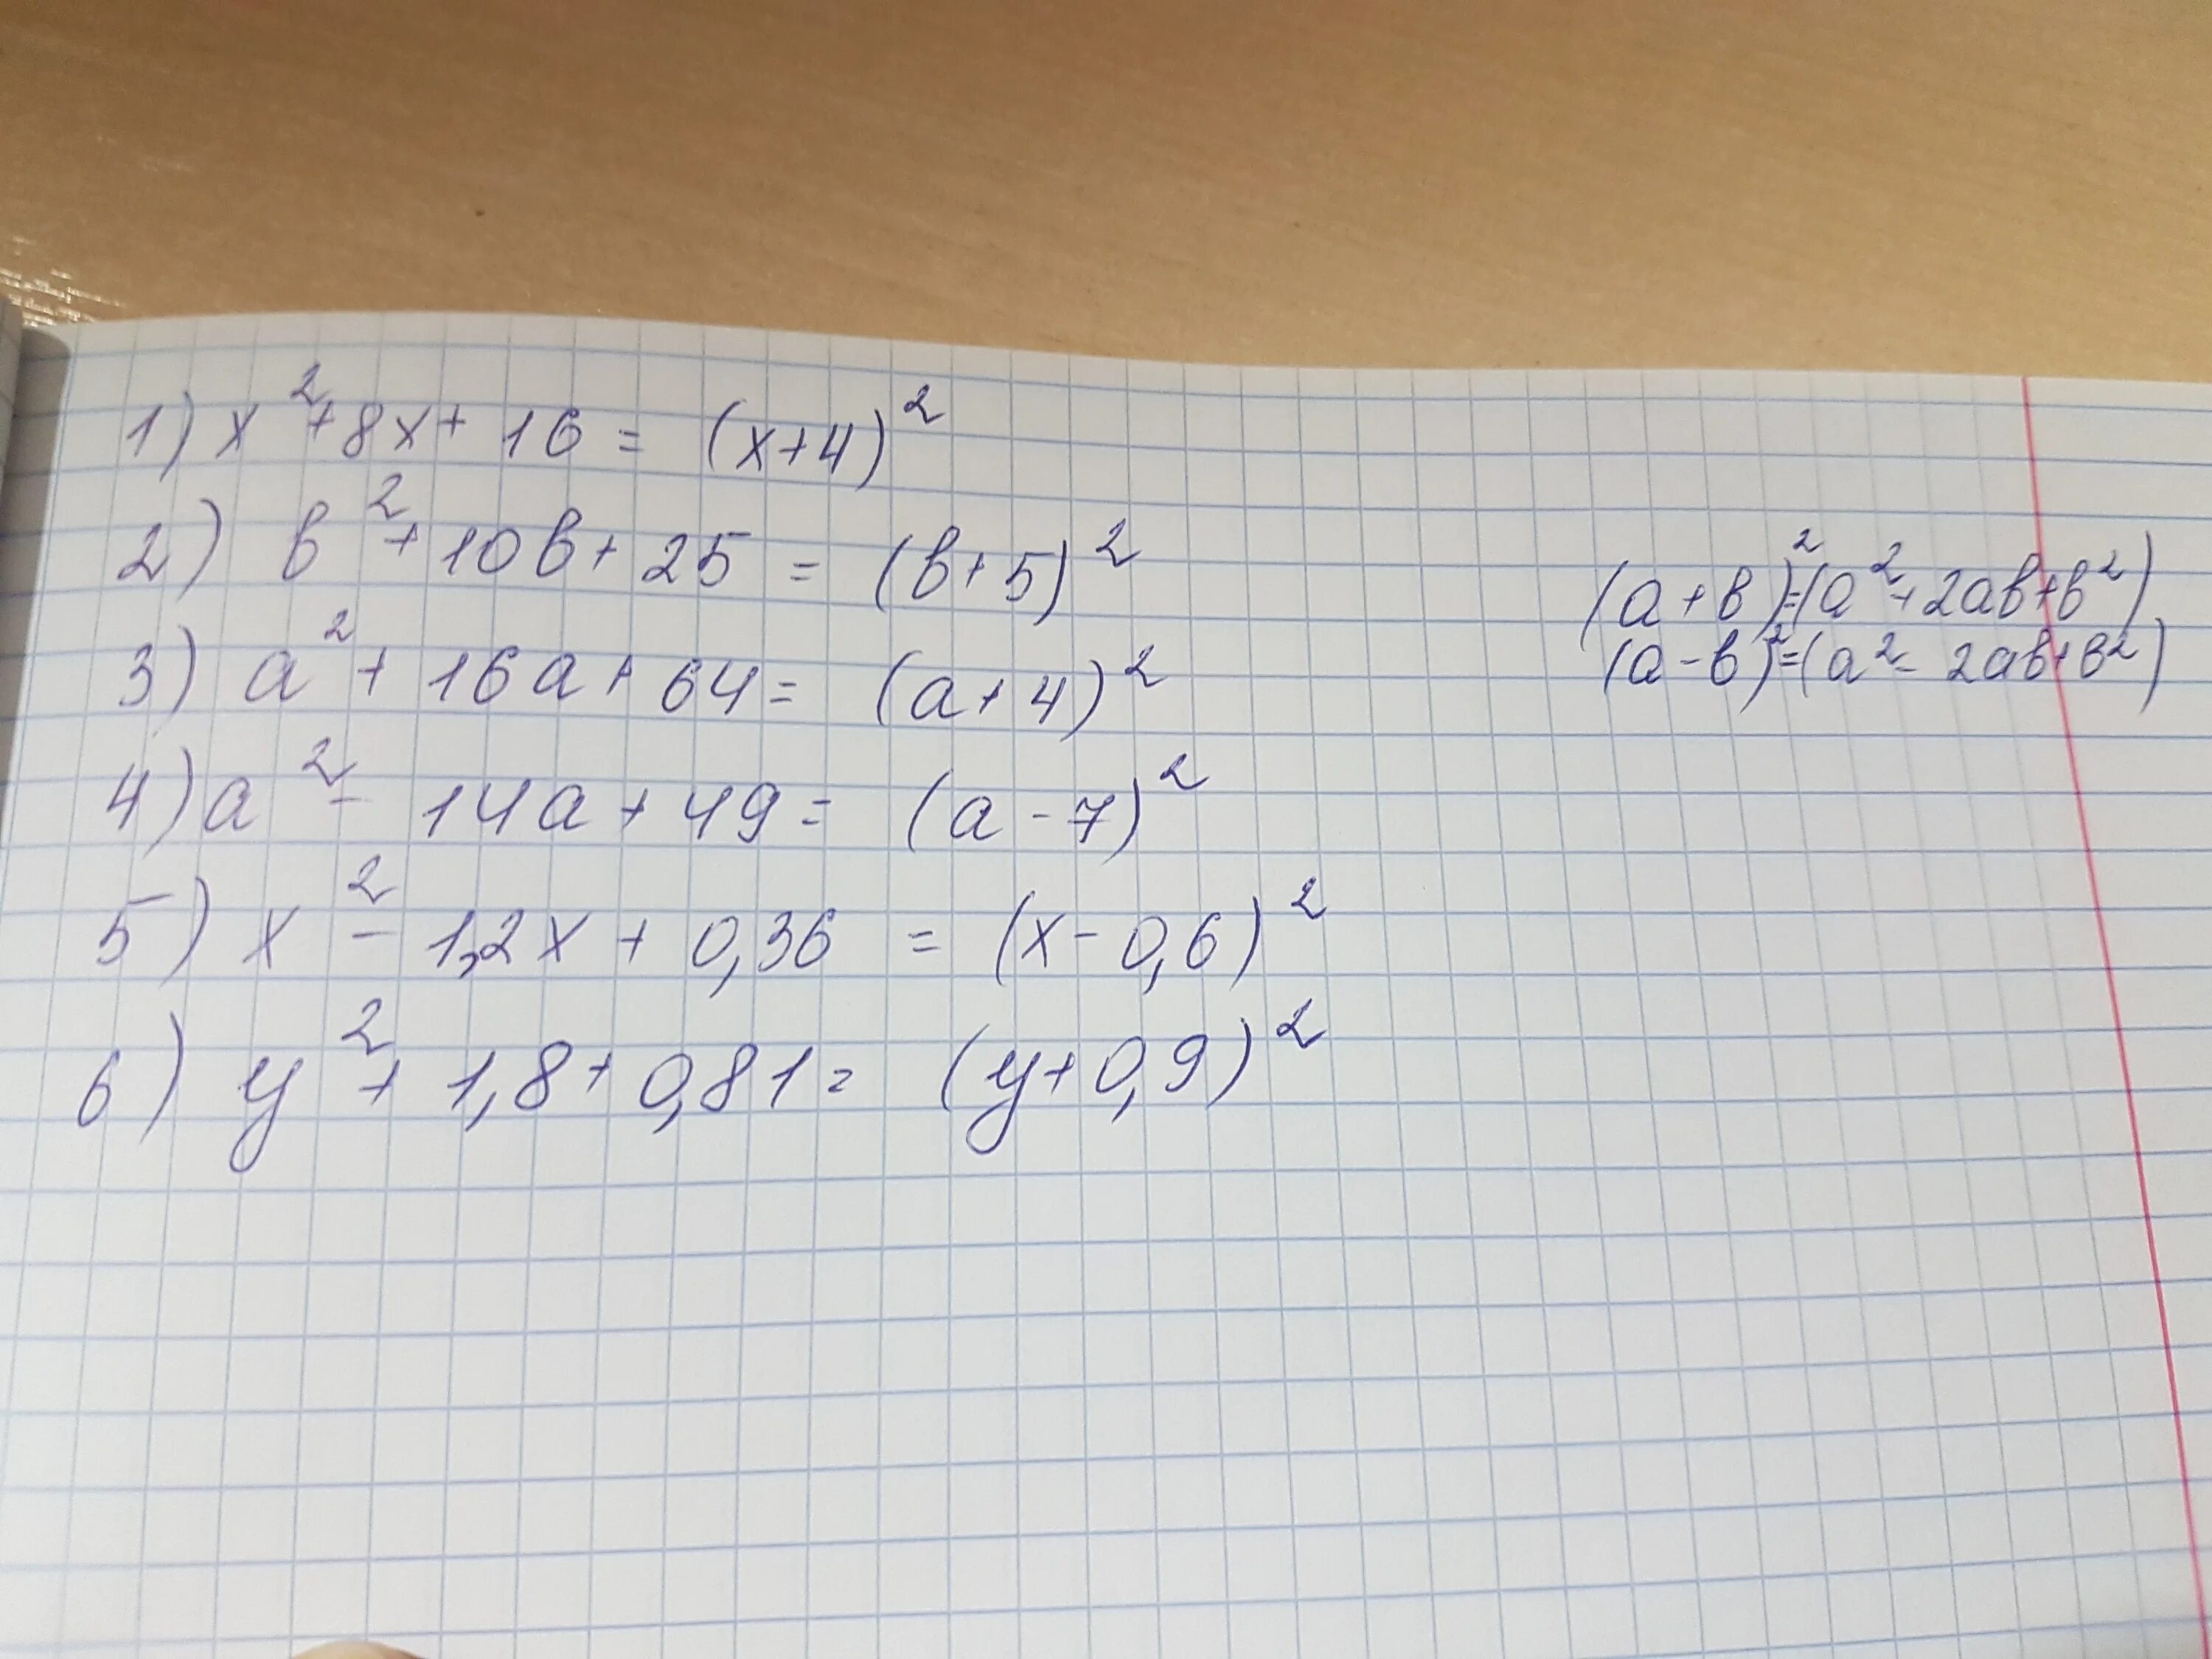 1) x² + 8x + 16 = (x+4)²
2) в² + 10в + 25 = (в+5)²
3) a² + 16a + 64 = (a+4)²
4) a² - 14a + 49 = (a-7)²
5) x² - 1,2x + 0,36 = (x-0,6)²
6) y² + 1,8 + 0,81 = (y+0,9)²
(a+в)²=(a²+2aв+в²)
(a-в)²=(a²-2aв+в²)